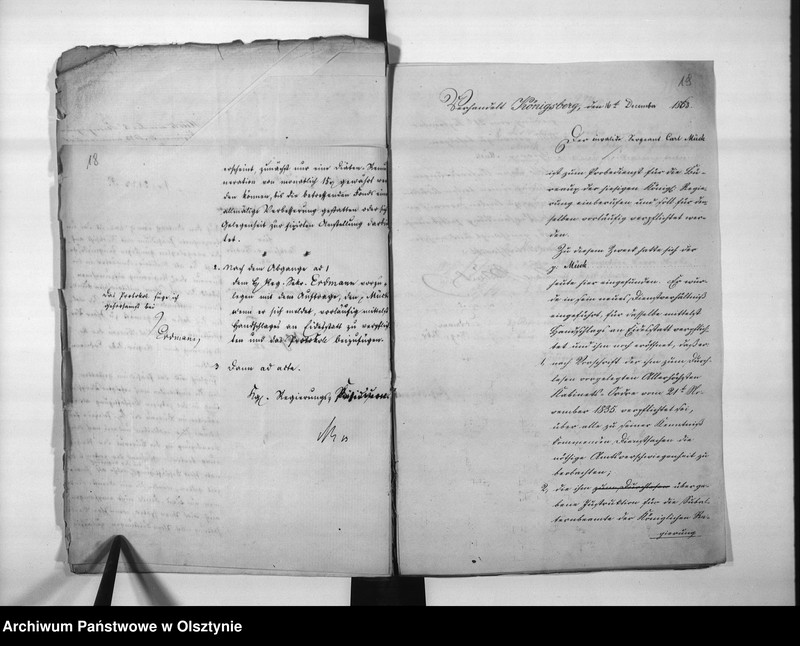 18
erscheint, zunächst nur eine Diäten-Remu-
neration von monatlich 15 rg gewährt wer-
den können, bis die betreffenden Fonds eine
allmälige Verbesserung gestatten oder sich
Gelegenheit zur fixirten Anstellung darbie-
tet.
2. Nach dem Abgange ad 1
dem Hrn Reg. Sekr. Erdmann vorzu-
legen mit dem Auftrage, den p. Mück
wenn er sich meldet, vorläufig mittelst
Handschlages an Eidesstatt zu verpflich-
ten und das Protokoll beizufügen.
3 Dann ad acta.
Kgl. Regierungs Präsidium
Das Protokoll füge ich
gehorsamst bei
Erdmann
19
Verhandelt Königsberg, den 16t December 1863.
Der invalide Sergeant Carl Mück
ist zum Probedienst für die Bü-
reaux der hiesigen Königl. Regie-
rung einberufen und soll für die-
selben vorläufig verpflichtet wer-
den.
Zu diesem Zweck hatte sich der
p. Mück
heute hier eingefunden. Er wur-
de in sein neues Dienstverhältniß
eingeführt, für dasselbe mittelst
Handschlags an Eidesstatt verpflich-
tet und ihm noch eröffnet, daß er
1. nach Vorschrift der ihm zum Durch-
lesen vorgelegten Allerhöchsten
Kabinets-Ordre vom 21t No-
vember 1835 verpflichtet sei,
über alle zu seiner Kenntniß
kommenden Dienstsachen die
nöthige Amtsverschwiegenheit zu
beobachten;
2, die ihm zum Durchlesen überge-
bene Instruktion für die Subal-
ternbeamte der Königlichen Re-
gierung
Archiwum Państwowe w Olsztynie